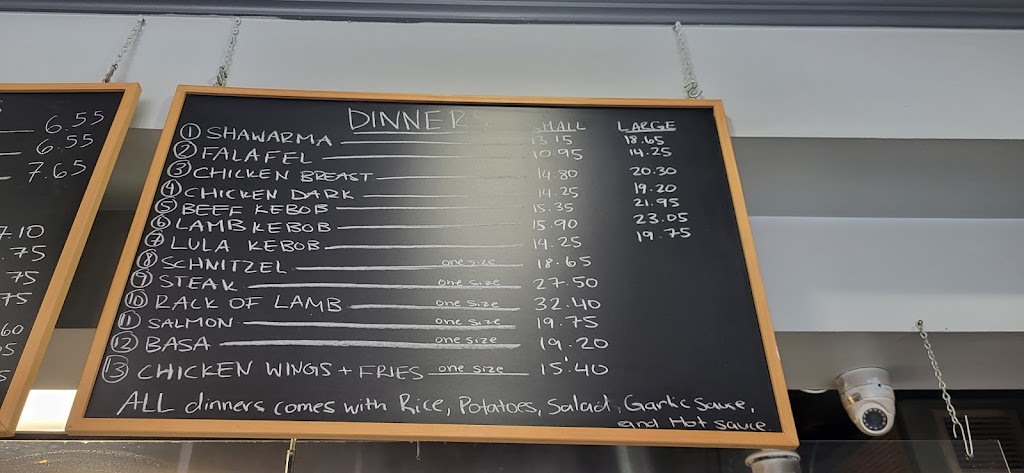 6.55
6.55
7.65
.75
75
75
60
DINNER SMALL LARGE
1 SHAWARMA 13.15 18.65
2 FALAFEL 10.95 14.25
3 CHICKEN BREAST 14.80 20.30
4 CHICKEN DARK 14.25 19.20
5 BEEF KEBOB 15.35 21.95
6 LAMB KEBOB 15.90 23.05
7 LULA KEBOB 14.25 19.75
8 SCHNITZEL one size 18.65
9 STEAK one size 27.50
10 RACK OF LAMB one size 32.40
11 SALMON one size 19.75
12 BASA one size 19.20
13 CHICKEN WINGS + FRIES one size 15.40
ALL dinners comes with Rice, Potatoes, Salad, Garlic Sauce,
and Hot sauce.